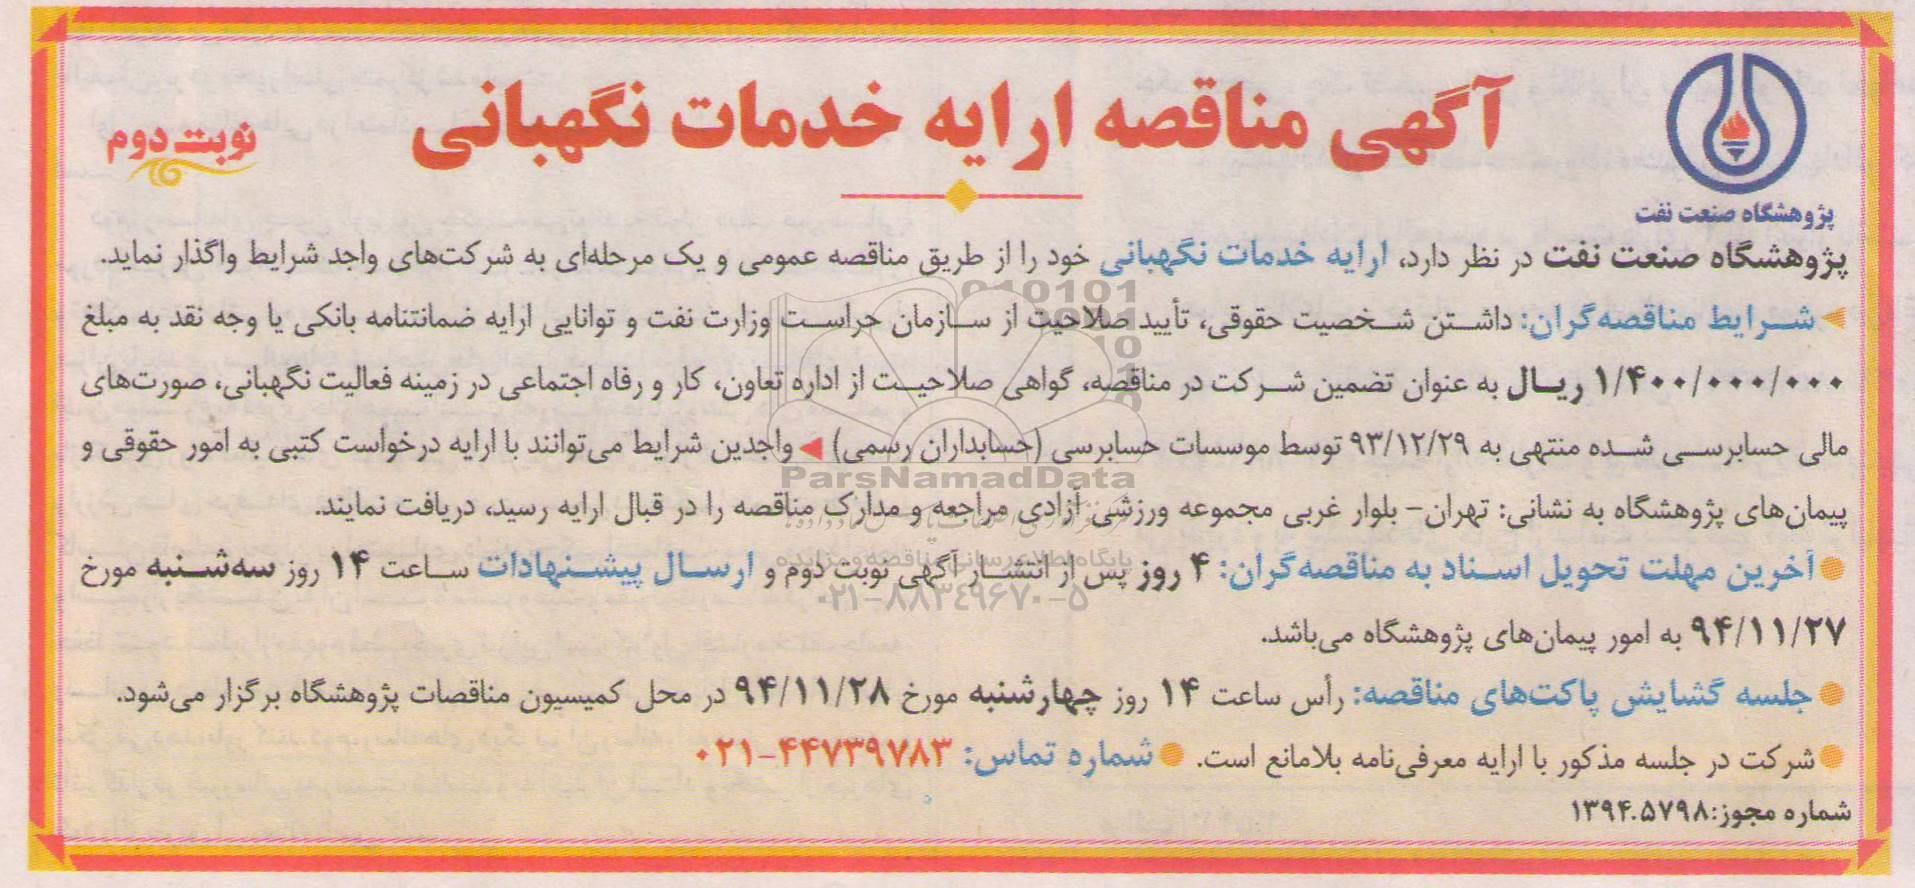 آگهی مناقصه ارایه خدمات نگهبانی
نوبت دوم
پژوهشگاه صنعت نفت
پژوهشگاه صنعت نفت در نظر دارد، ارایه خدمات نگهبانی خود را از طریق مناقصه عمومی و یک مرحله‌ای به شرکت‌های واجد شرایط واگذار نماید.
شرایط مناقصه‌گران: داشتن شخصیت حقوقی، تأیید صلاحیت از سازمان حراست وزارت نفت و توانایی ارایه ضمانتنامه بانکی یا وجه نقد به مبلغ
۱/۴۰۰/۰۰۰/۰۰۰ ریال به عنوان تضمین شرکت در مناقصه، گواهی صلاحیت از اداره تعاون، کار و رفاه اجتماعی در زمینه فعالیت نگهبانی، صورت‌های
مالی حسابرسی شده منتهی به ۹۳/۱۲/۲۹ توسط موسسات حسابرسی (حسابداران رسمی) واجدین شرایط می‌توانند با ارایه درخواست کتبی به امور حقوقی و
پیمان‌های پژوهشگاه به نشانی: تهران- بلوار غربی مجموعه ورزشی آزادی مراجعه و مدارک مناقصه را در قبال ارایه رسید، دریافت نمایند.
آخرین مهلت تحویل اسناد به مناقصه‌گران: ۴ روز پس از انتشار آگهی نوبت دوم و ارسال پیشنهادات ساعت ۱۴ روز سه‌شنبه مورخ
۹۴/۱۱/۲۷ به امور پیمان‌های پژوهشگاه می‌باشد.
جلسه گشایش پاکت‌های مناقصه: رأس ساعت ۱۴ روز چهارشنبه مورخ ۹۴/۱۱/۲۸ در محل کمیسیون مناقصات پژوهشگاه برگزار می‌شود.
شرکت در جلسه مذکور با ارایه معرفی‌نامه بلامانع است. شماره تماس: ۴۴۷۳۹۷۸۳-۰۲۱
شماره مجوز:۱۳۹۴.۵۷۹۸
ParsNamadData
پایگاه اطلاع رسانی مناقصه و مزایده
۰۲۱-۸۸۳۴۹۶۷۰-۵